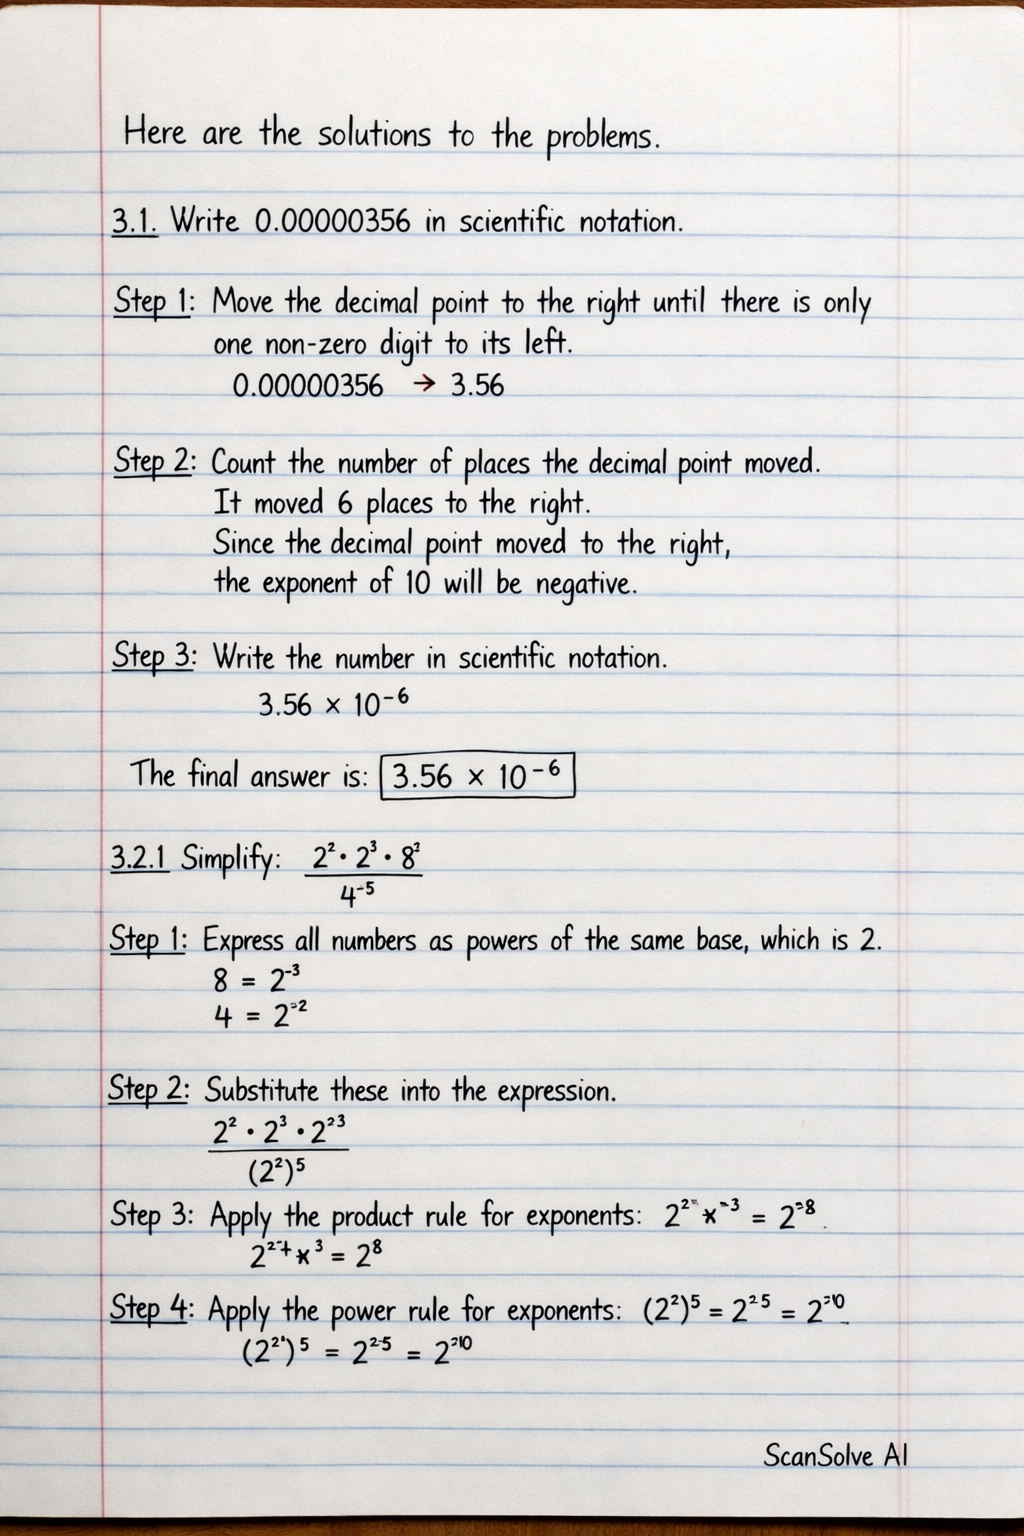 Here are the solutions to the problems.
3.1. Write 0.00000356 in scientific notation.
Step 1: Move the decimal point to the right until there is only
one non-zero digit to its left.
0.00000356 → 3.56
Step 2: Count the number of places the decimal point moved.
It moved 6 places to the right.
Since the decimal point moved to the right,
the exponent of 10 will be negative.
Step 3: Write the number in scientific notation.
3.56 × 10⁻⁶
The final answer is: 3.56 × 10⁻⁶
3.2.1 Simplify: 2² · 2³ · 8²
4⁻⁵
Step 1: Express all numbers as powers of the same base, which is 2.
8 = 2⁻³
4 = 2⁻²
Step 2: Substitute these into the expression.
2² · 2³ · 2²³
(2²)⁵
Step 3: Apply the product rule for exponents: = 2⁻⁸
= 2⁸
Step 4: Apply the power rule for exponents: (2²)⁵ = 2²⁵ = 2⁻¹⁰
= 2⁻¹⁰
ScanSolve AI